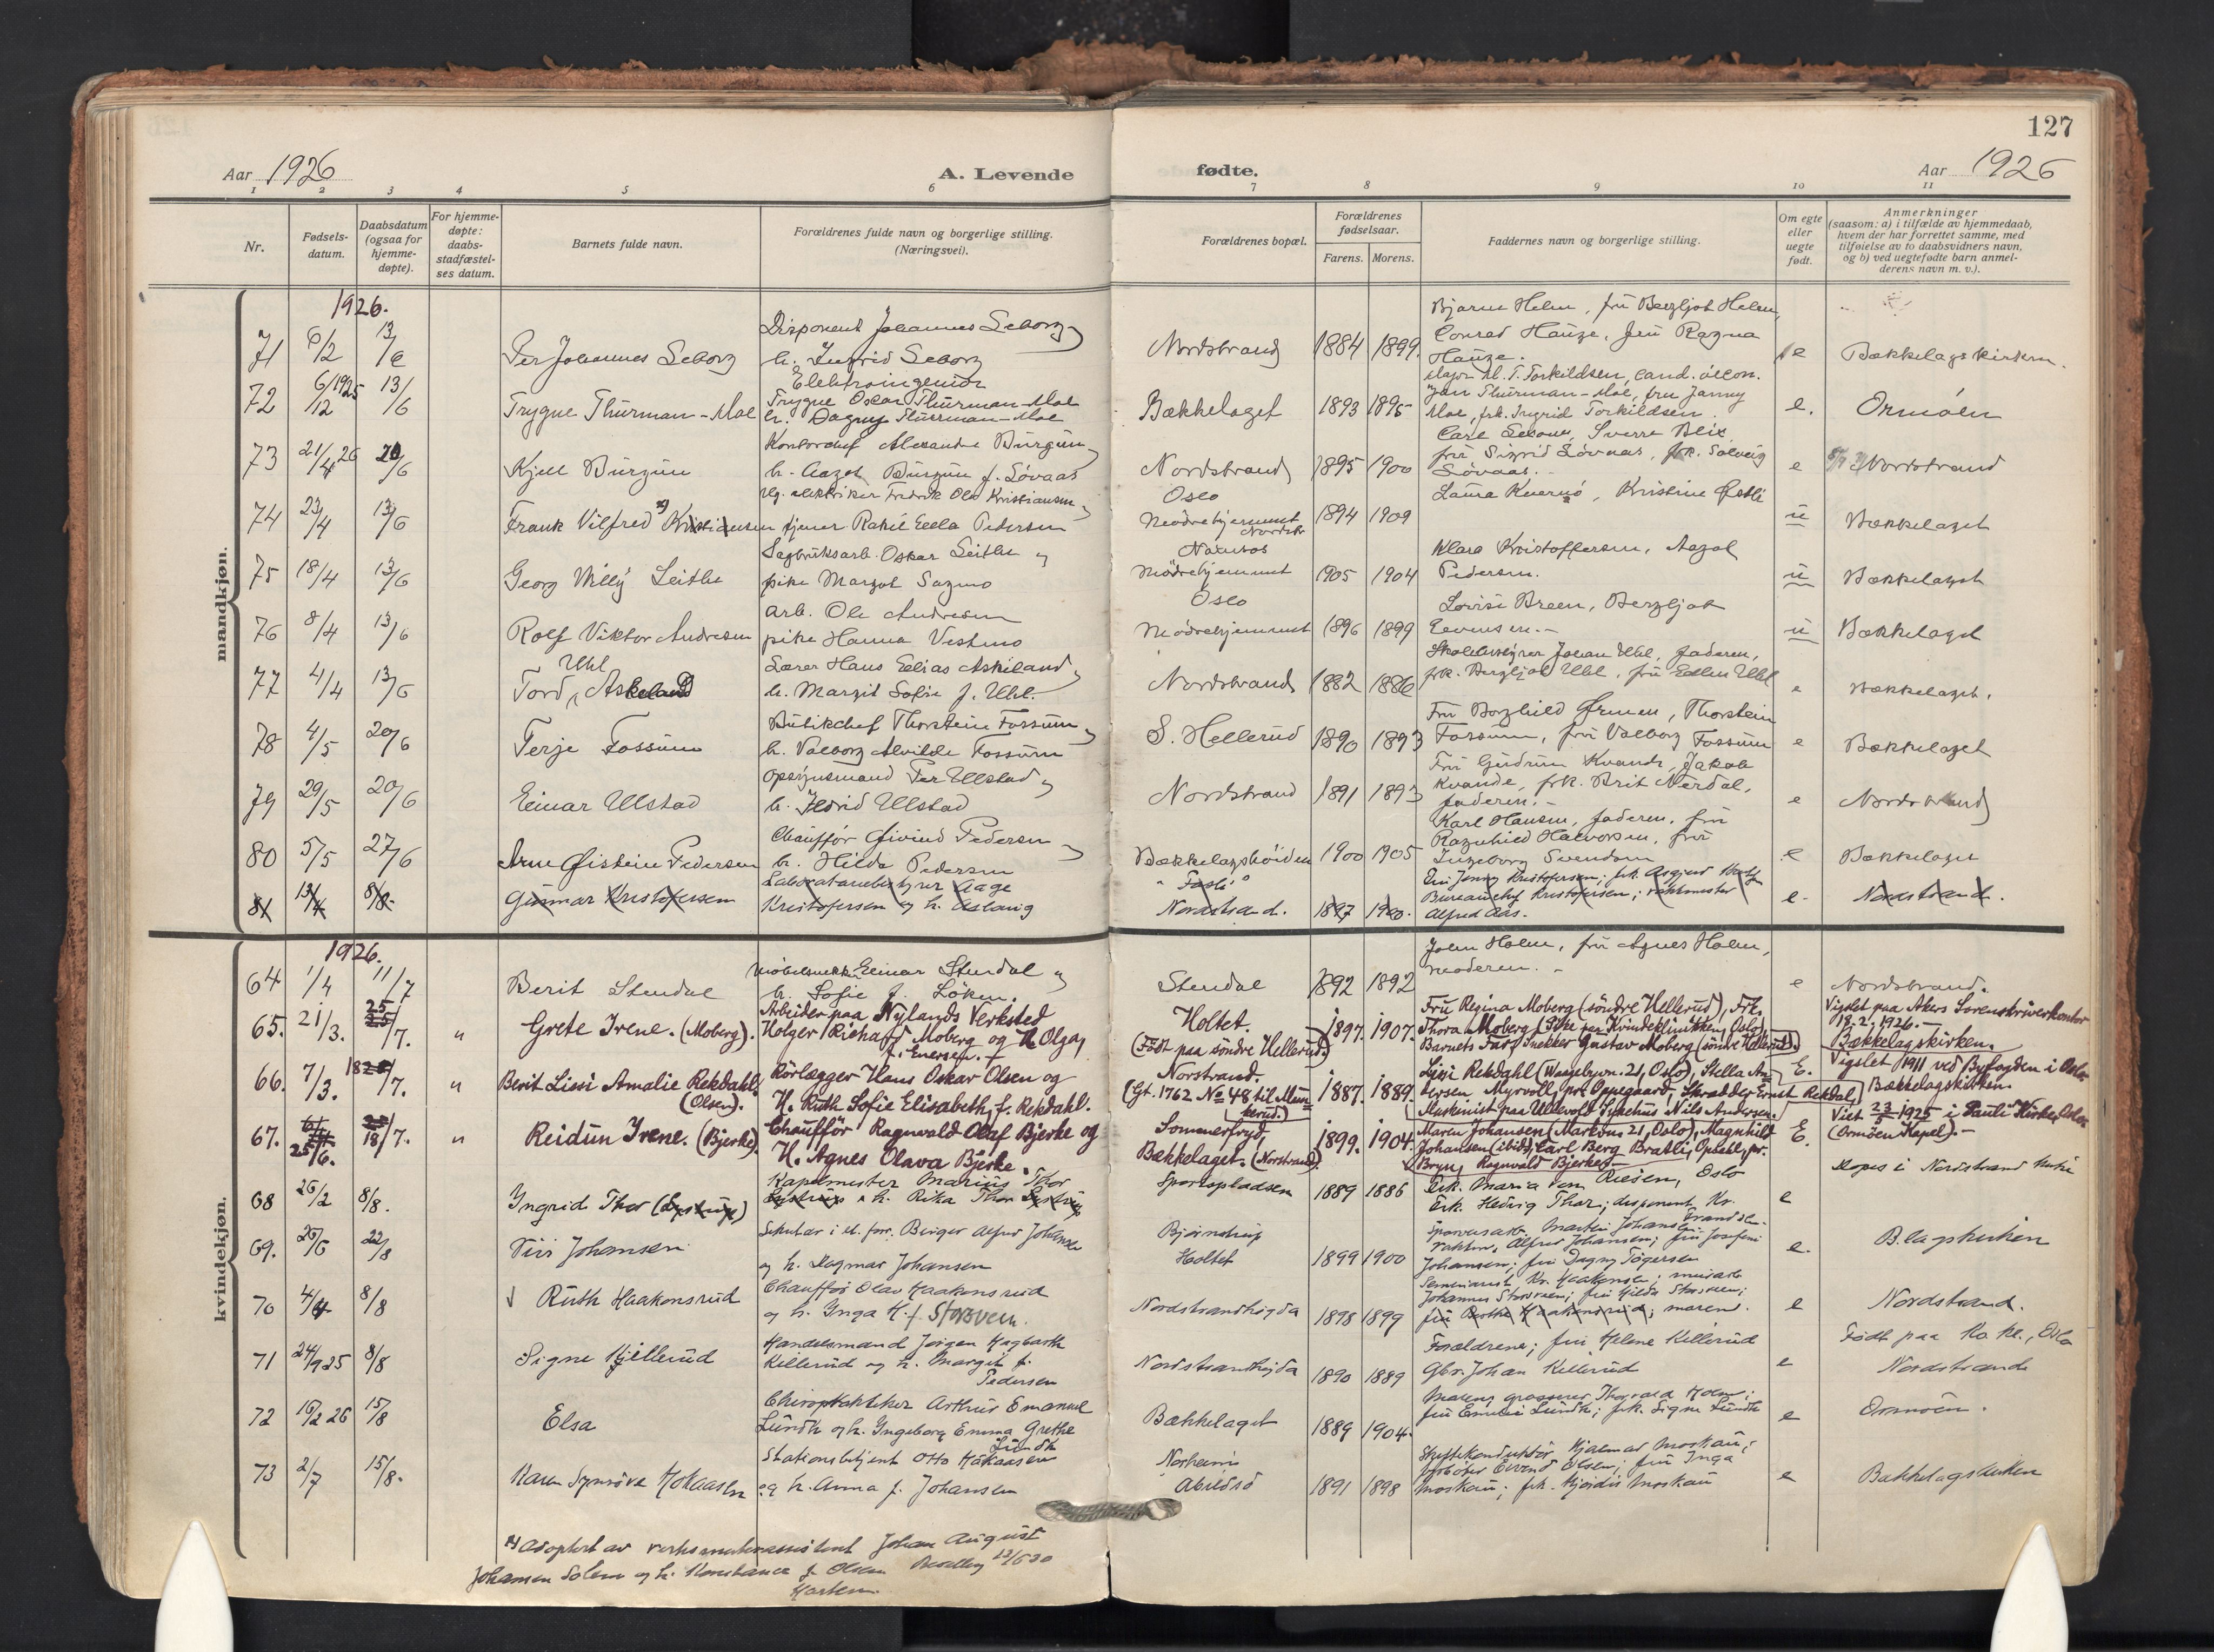 127
Aar 1926
A. Levende
fødte.
Aar 1926
1 2 3 4 5 6 7 8 9 10 11
Nr.
Fødsels-
datum.
Daabsdatum
(ogsaa for
hjemme-
døpte).
For hjemme-
døpte:
daabs-
stadfæstel-
ses datum.
Barnets fulde navn.
Forældrenes fulde navn og borgerlige stilling.
(Næringsvei).
Forældrenes bopæl.
Forældrenes
fødselsaar.
Farens. Morens.
Faddernes navn og borgerlige stilling.
Om egte
eller
uegte
født.
Anmerkninger
(saasom: a) i tilfælde av hjemmedaab,
hvem der har forrettet samme, med
tilføielse av to daabsvidners navn,
og b) ved uegtefødte barn anmel-
derens navn m. v.).
mandkjøn.
1926.
71 6/2 13/6 Per Johannes Seborg
Disponent Johannes Seborg
h. Ingrid Seborg
Nordstrand 1884 1899
Bjarne Holm, fru Bergljot Holm,
Conrad Hauge, fru Ragna
Hauge.
e Bækkelagskirken.
72 6/12 1925 13/6 Trygve Thurman-Moe
Elektroingeniør
Trygve Oscar Thurman-Moe
h. Dagny Thurman-Moe
Bækkelaget 1893 1895
Major M. T. Torkildsen, cand. oecon.
Jan Thurman-Moe, fru Janny
Moe, frk. Ingrid Torkildsen.
e. Ormöen
73 21/4 26 20/6 Kjell Burgun
Kontorchef Alexander Burgun
h. Aagot Burgun f. Løvaas
Nordstrand 1895 1900
Sverre Blix,
fru Sigrid Løvaas, frk. Solveig
Løvaas.
e Nordstrand
74 23/4 13/6 Frank Vilfred x) Kristiansen
elektriker Fredrik Olav Kristiansen
tjener Rakil Ella Pedersen
Oslo
Mödrehjemmet
Nordstr.
1894 1909
Laura Kvernø, Kristine Østli
u Bækkelaget
75 18/4 13/6 Georg Willy Seithe
Sagbruksarb. Oskar Seithe og
pike Margot Sagmo
Namsos
Mödrehjemmet
1905 1904
Klara Kristoffersen, Aagot
Pedersen.
u Bækkelaget
76 8/4 13/6 Rolf Viktor Andresen
arb. Ole Andresen
pike Hanna Vestmo
Oslo
Mödrehjemmet
1896 1899
Lovise Breen, Bergljot
Evensen.
u Bækkelaget
77 4/4 13/6 Tord Uhl Askeland
Lærer Hans Elias Askeland
h. Margit Sofie f. Uhl.
Nordstrand 1882 1886
Skolebestyrer Johan Uhl, faderen,
frk. Bergljot Uhl, fru Ellen Uhl
e Bækkelaget.
78 4/5 20/6 Terje Fossum
Butikchef Thorstein Fossum
h. Valborg Alvilde Fossum
S. Hellerud 1890 1893
Fru Borghild Ørmen, Thorstein
Fossum, fru Valborg Fossum
e Bækkelaget
79 29/5 20/6 Einar Ulstad
Opsynsmand Per Ulstad
h. Ulstad
Nordstrand 1891 1893
Fru Gudrun Kvande, Jakob
Kvande, frk. Brit Nerdal,
faderen.
e Nordstrand
80 5/5 27/6 Arne Øistein Pedersen
Chauffør Øivind Pedersen
h. Hilda Pedersen
Bækkelagshöiden 1900 1905
Karl Hansen, faderen, fru
Ragnhild Halvorsen, fru
Ingeborg Svendsen
e Bækkelaget
81 13/4 8/8 Gunnar Kristofersen
Laboratoriebestyrer Aage
Kristofersen og h. Aslaug
Nordstrand. 1897 1900.
Fru Jenny Kristofersen; frk. Asgjerd
Bureauchef Kristofersen; vaktmester
Alfred Aas.
e. Nordstrand.
kvindekjøn.
1926.
64 1/4 11/7 Berit Stendal
Møbelsnekker Einar Stendal og
h. Sofie f. Löken.
Stendal 1892 1892
John Holm, fru Agnes Holm,
moderen.
e Nordstrand.
65. 21/3. 25/7. " Grete Irene. (Moberg).
Arbeider paa Nylands Verksted
Holger Richard Moberg og H. Olga,
f. Enersen.
Holtet.
(Födt paa söndre Hellerud.)
1897. 1907.
Fru Regina Moberg (söndre Hellerud), Frk.
Thora Moberg (Pike paa Kvindeklinikken, Oslo)
Barnets Far, Snekker Gustav Moberg (söndre Hellerud).
Vigslet paa Akers Sorenskriverkontor
18.2.1926.
Bækkelagskirken.
66. 7/3. 18/7. " Berit Lissi Amalie Rekdahl.
(Olsen).
Rörlægger Hans Oskar Olsen og
H. Ruth Sofie Elisabeth, f. Rekdahl.
Norstrand.
(Gt. 1762 No 48 til Mun-
kerud.)
1887. 1889.
Lissi Rekdahl (21, Oslo), Stella An-
dersen, Myrvoll, pr. Oppegaard, Skrædder Ernst Rekdal,
Maskinist paa Ullevold Sykehus Nils Andersen.
E. Vigslet 1911 ved Byfogden i Oslo.
Bækkelagskirken.
67. 25/6. 18/7. " Reidun Irene. (Bjerke).
Chauffør Ragnvald Olaf Bjerke og
H. Agnes Olava Bjerke.
Sommerfryd,
Bækkelaget. (Norstrand).
1899. 1904.
Maren Johansen (Markvn. 21, Oslo), Magnhild
Johansen (ibid), Carl Berg Bratli, Opsahl, pr.
Bryn, Ragnvald Bjerke.
E. Viet 23/5 1925 i Pauli Kirke, Oslo.
(Ormöen Kapel).
68 26/2 8/8. Ingrid Thor
Kapelmester Marius Thor
h. Rika Thor
Sportspladsen 1889 1886
Frk. Maria von Riesen, Oslo
Frk. Hedvig Thor; disponent Kr.
e Døpes i Nordstrand kirke
69. 26/6 22/8 Vivi Johansen
Sekretær i Birger Alfred Johansen
og h. Dagmar Johansen
Bjørnstrup
Holtet
1899 1900
Alfred Johansen; fru Josefine
Johansen; fru Dagny Tøgersen
e. B.lagskirken
70 4/4 8/8 Ruth Haakonsrud
Chauffør Olav Haakonsrud
og h. Inga H. f. Storsveen.
Nordstrandhøgda 1898 1899
Johannes Storsveen; fru Hilda Storsveen;
moren.
e Nordstrand.
71 24/9 25 8/8 Signe Kjillerud
Handelsmand Jørgen Hagbarth
Killerud og h. Margit f.
Pedersen
Nordstrandhøgda 1890 1889
Forældrene; fru Helene Killerud
Gbr. Johan Killerud
e Født paa Kv. kl., Oslo
Nordstrand
72 16/2 26 15/8 Elsa
Chiropraktiker Arthur Emanuel
Lundh og h. Ingeborg Emma Grethe
Lundh
Bækkelaget 1889 1904.
Moren; grosserer Thorvald Holm;
fru Emilie Lundh; frk. Signe Lundh
e Ormøen.
73 2/7 15/8. Karen Synnøve Hokaasen
Stationsbetjent Otto Hokaasen
og h. Anna f. Johansen
Norheim
Abildsø
1891 1898
Hjalmar Moskau;
Eivind Olsen; fru Inga
Moskau; frk. Hjørdis Moskau
e Bækkelagskirken
x) Adoptert av verksmesterassistent Johan August
Johansen Solem og h. Konstance f. Olsen Bevilling 13/6 30